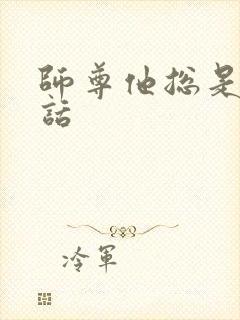 師尊他總是
話
冷軍